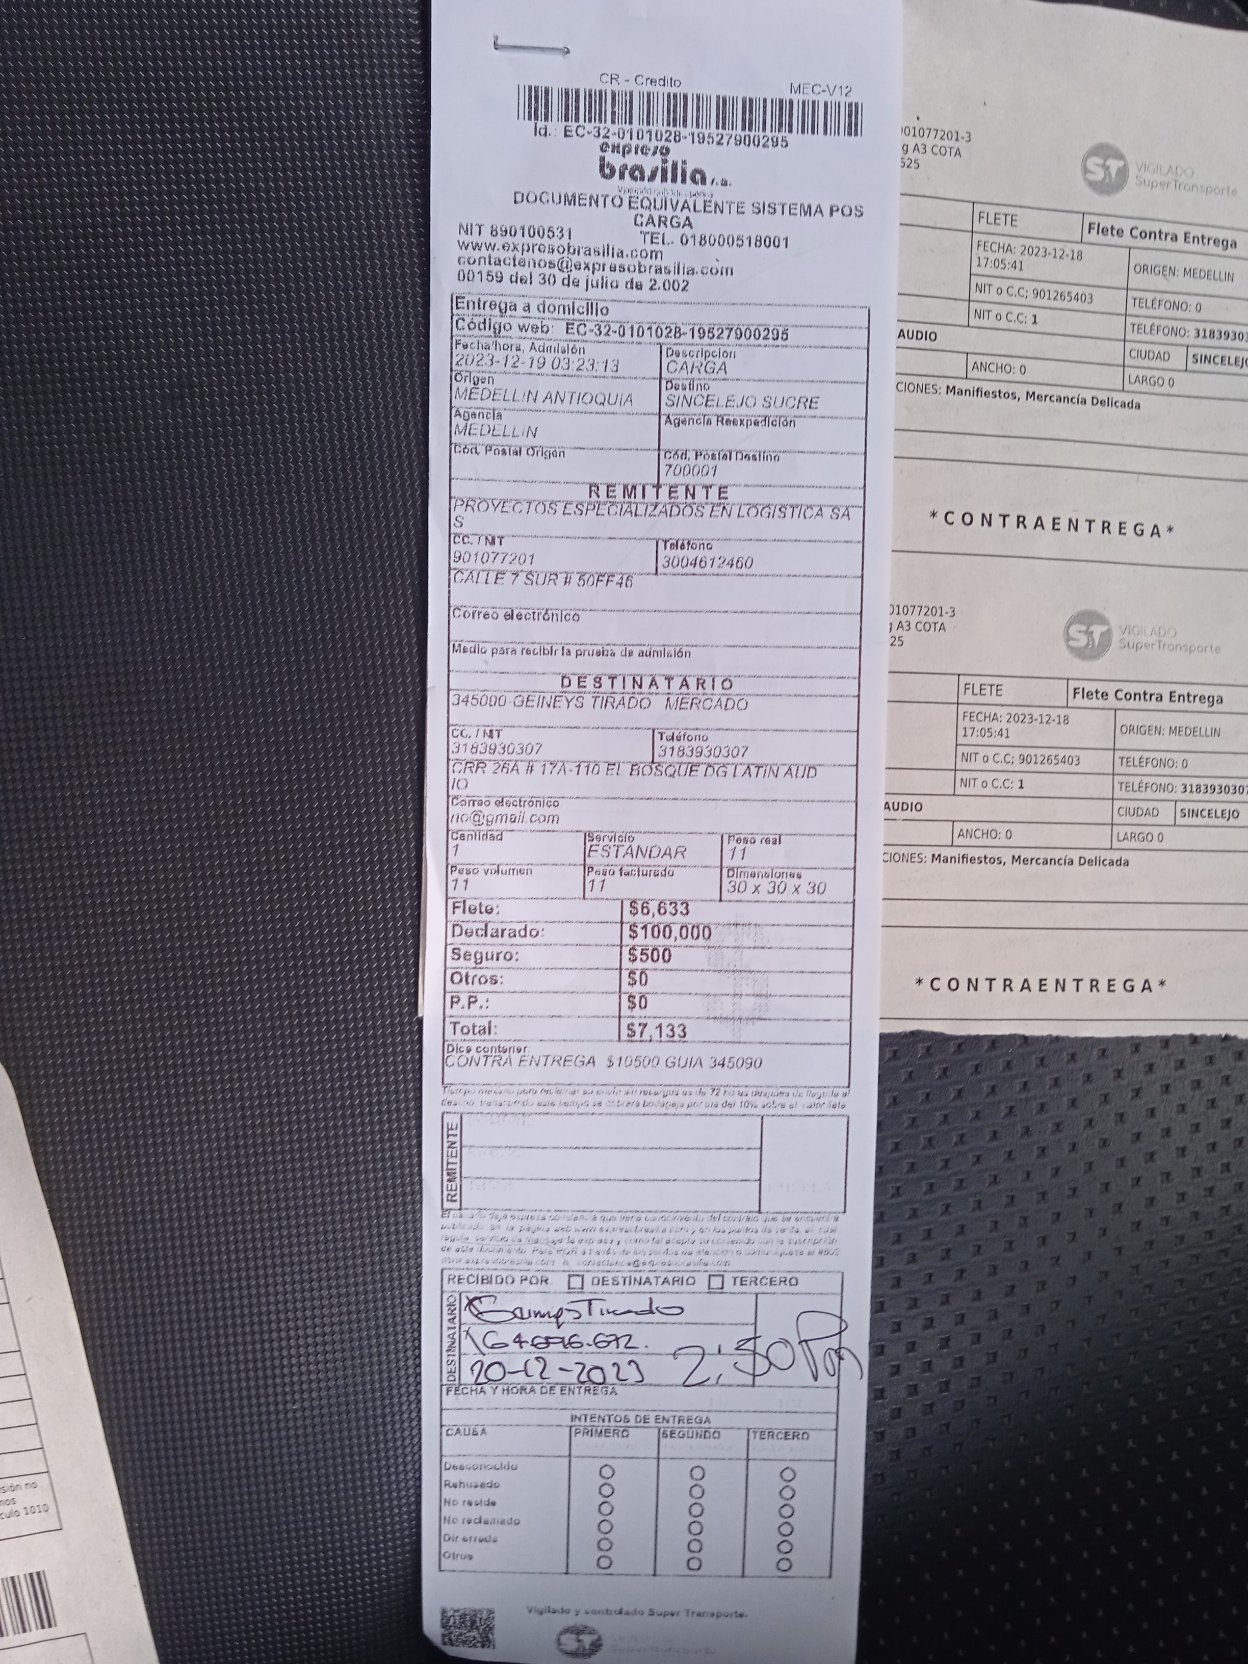 CR - Credito
MEC-V12
Id.: EC-32-0101028-19527900295
expreso
brasilia s.a.
DOCUMENTO EQUIVALENTE SISTEMA POS
CARGA
NIT 890100531
TEL. 018000518001
www.expresobrasilia.com
contactenos@expresobrasilia.com
00159 del 30 de julio de 2.002
Entrega a domicilio
Código web: EC-32-0101028-19527900295
Fecha/hora, Admisión
Descripcion
2023-12-19 03:23:13
CARGA
Origen
Destino
MEDELLIN ANTIOQUIA
SINCELEJO SUCRE
Agencia
Agencia Reexpedición
MEDELLIN
Cód, Postal Origen
Cód, Postal Destino
700001
REMITENTE
PROYECTOS ESPECIALIZADOS EN LOGISTICA SA
S
CC. / NIT
Teléfono
901077201
3004612460
CALLE 7 SUR # 50FF46
Correo electrónico
Medio para recibir la prueba de admisión
DESTINATARIO
345000-GEINEYS TIRADO MERCADO
CC. / NIT
Teléfono
3183930307
3183930307
CRR 26A # 17A-110 EL BOSQUE DG LATIN AUD
IO
Correo electrónico
no@gmail.com
Cantidad
Servicio
Peso real
1
ESTANDAR
11
Peso volumen
Peso facturado
Dimensiones
11
11
30 x 30 x 30
Flete: $6,633
Declarado: $100,000
Seguro: $500
Otros: $0
P.P.: $0
Total: $7,133
Dice contener
CONTRA ENTREGA $10500 GUIA 345090
REMITENTE
RECIBIDO POR DESTINATARIO TERCERO
DESTINATARIO
Tirado
20-12-2023 2:50 Pm
FECHA Y HORA DE ENTREGA
INTENTOS DE ENTREGA
CAUSA PRIMERO SEGUNDO TERCERO
Desconocido
Rehusado
No reside
No reclamado
Dir errada
Otros
Vigilado y controlado Super Transporte.
ST
01077201-3
g A3 COTA
525
ST
VIGILADO
SuperTransporte
FLETE
Flete Contra Entrega
FECHA: 2023-12-18
17:05:41
ORIGEN: MEDELLIN
NIT o C.C; 901265403
TELÉFONO: 0
NIT o C.C: 1
TELÉFONO: 3183930
AUDIO
CIUDAD
SINCELEJO
ANCHO: 0
LARGO 0
CIONES: Manifiestos, Mercancía Delicada
*CONTRAENTREGA*
01077201-3
A3 COTA
25
ST
VIGILADO
SuperTransporte
FLETE
Flete Contra Entrega
FECHA: 2023-12-18
17:05:41
ORIGEN: MEDELLIN
NIT o C.C; 901265403
TELÉFONO: 0
NIT o C.C: 1
TELÉFONO: 318393030
AUDIO
CIUDAD
SINCELEJO
ANCHO: 0
LARGO 0
CIONES: Manifiestos, Mercancía Delicada
*CONTRAENTREGA*
sión no
nos
culo 1010